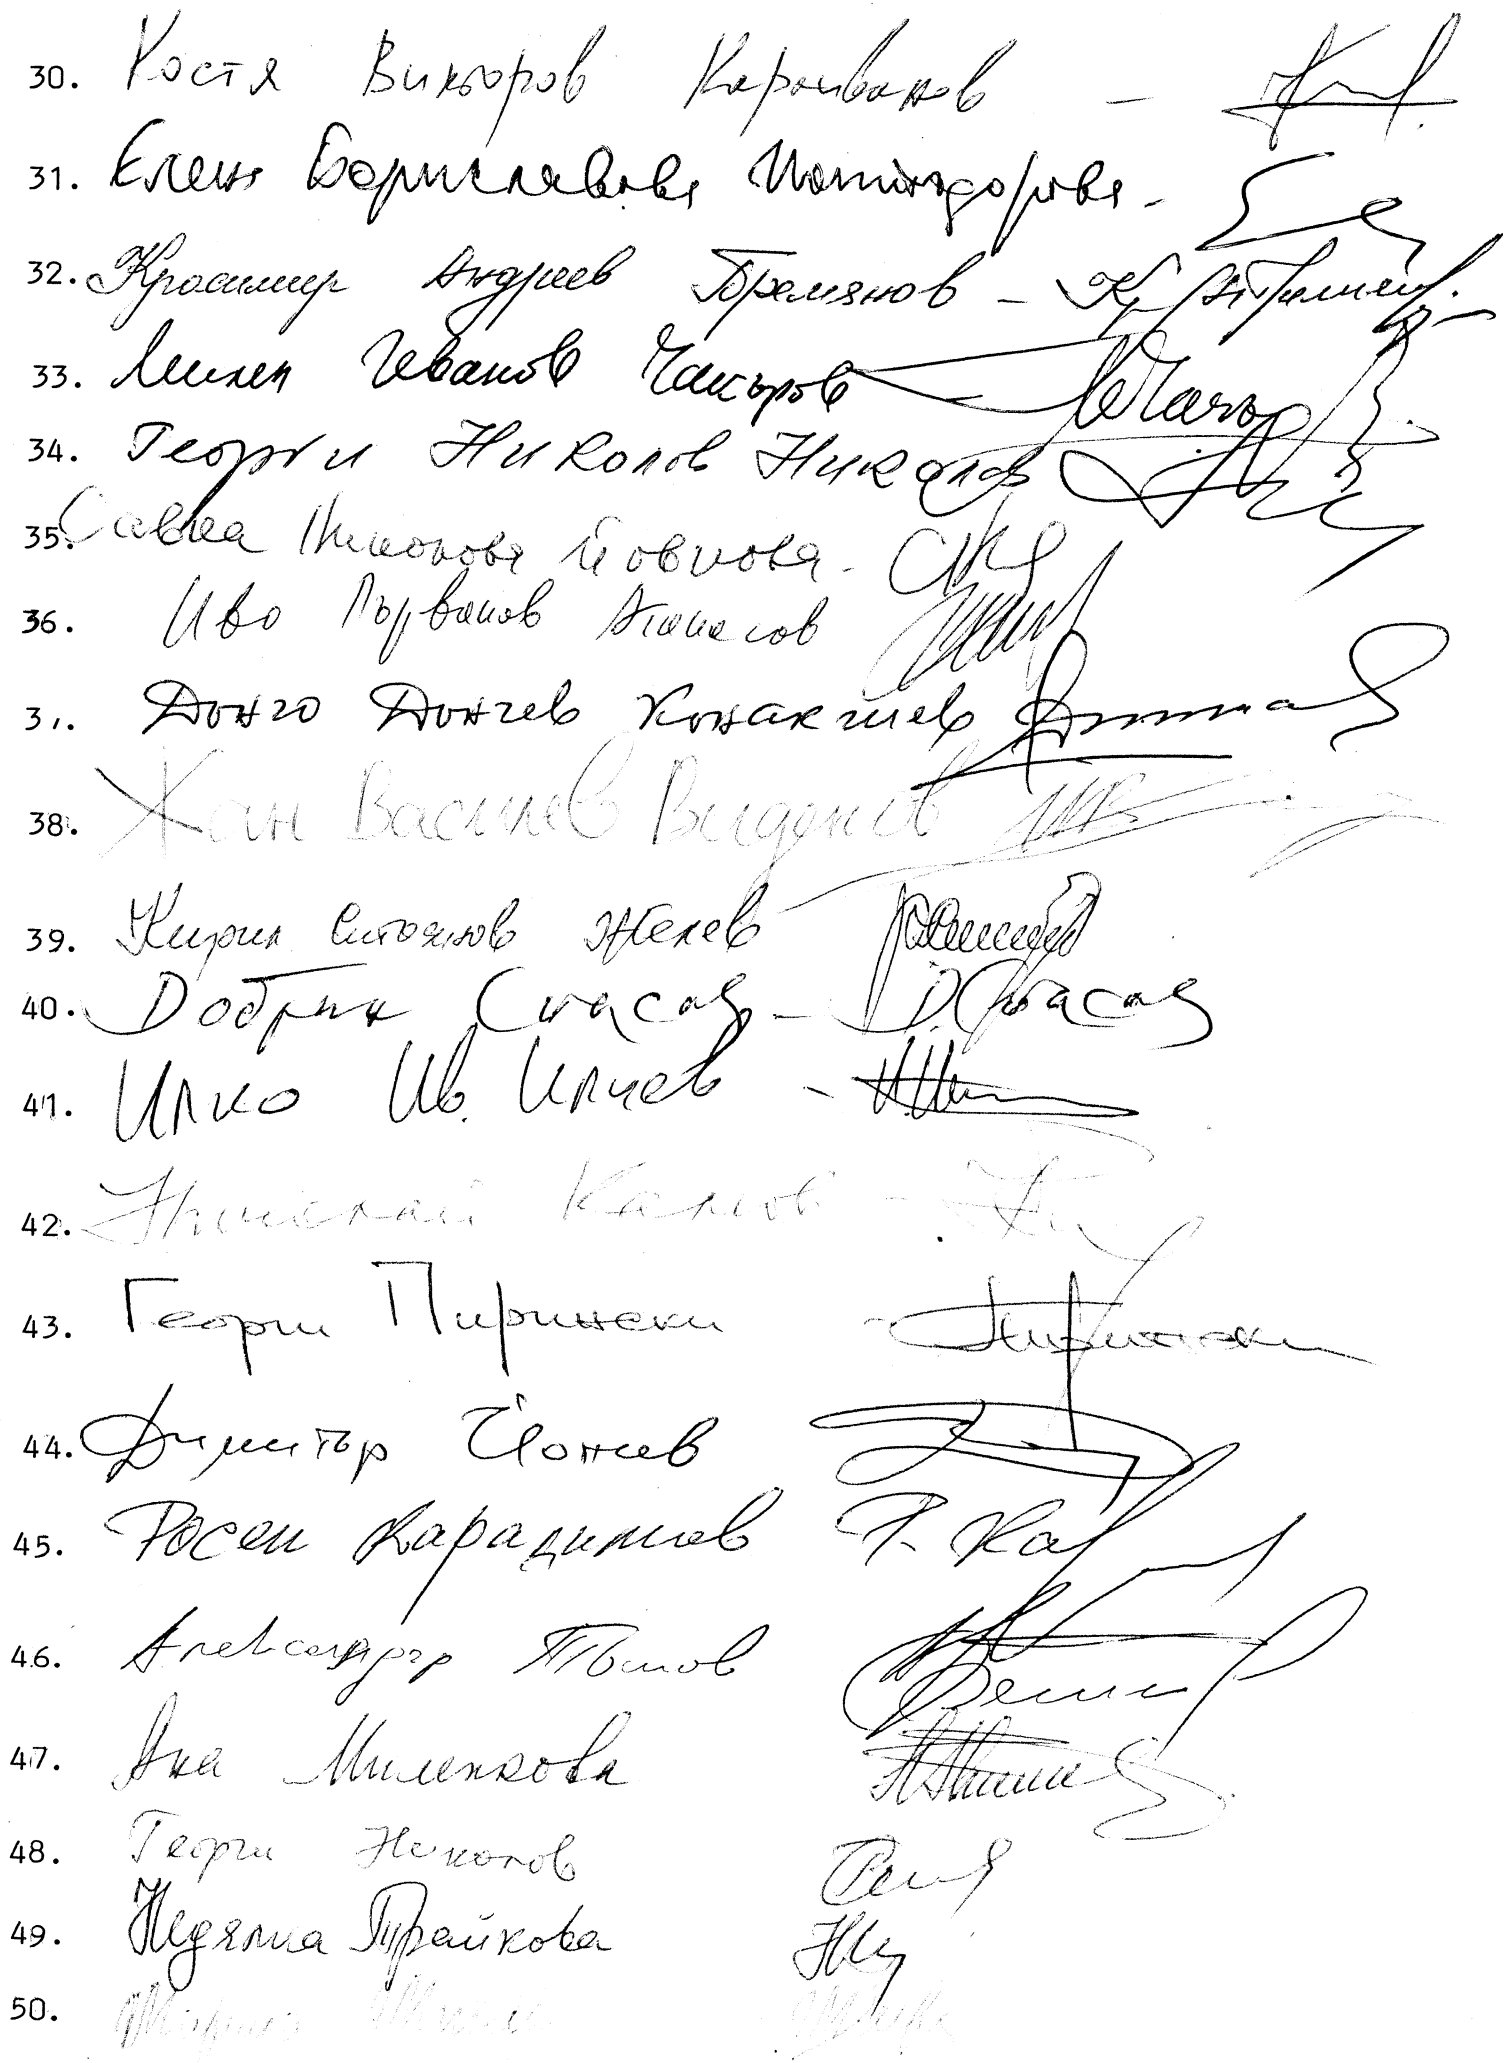 30. Костя Викторов Караиванов -
31. Елена Бориславова Поптодорова -
32. Красимир Андреев Премянов -
33. Милен Иванов Чакъров
34. Георги Николов Николов
35. Савка Николова Йовкова -
36. Иво Първанов Атанасов
37. Дончо Дончев Конакчиев
38. Жан Василев Виденов
39. Кирил Стоянов Желев
40. Добрин Спасов - Д. Спасов
41. Илко Ив. Илиев -
42. Николай Камов -
43. Георги Пирински - Пирински
44. Димитър Йончев
45. Росен Карадимов Р. Кар
46. Александър Томов
47. Ана Миленкова
48. Георги Николов
49. Недялка Трайкова
50.